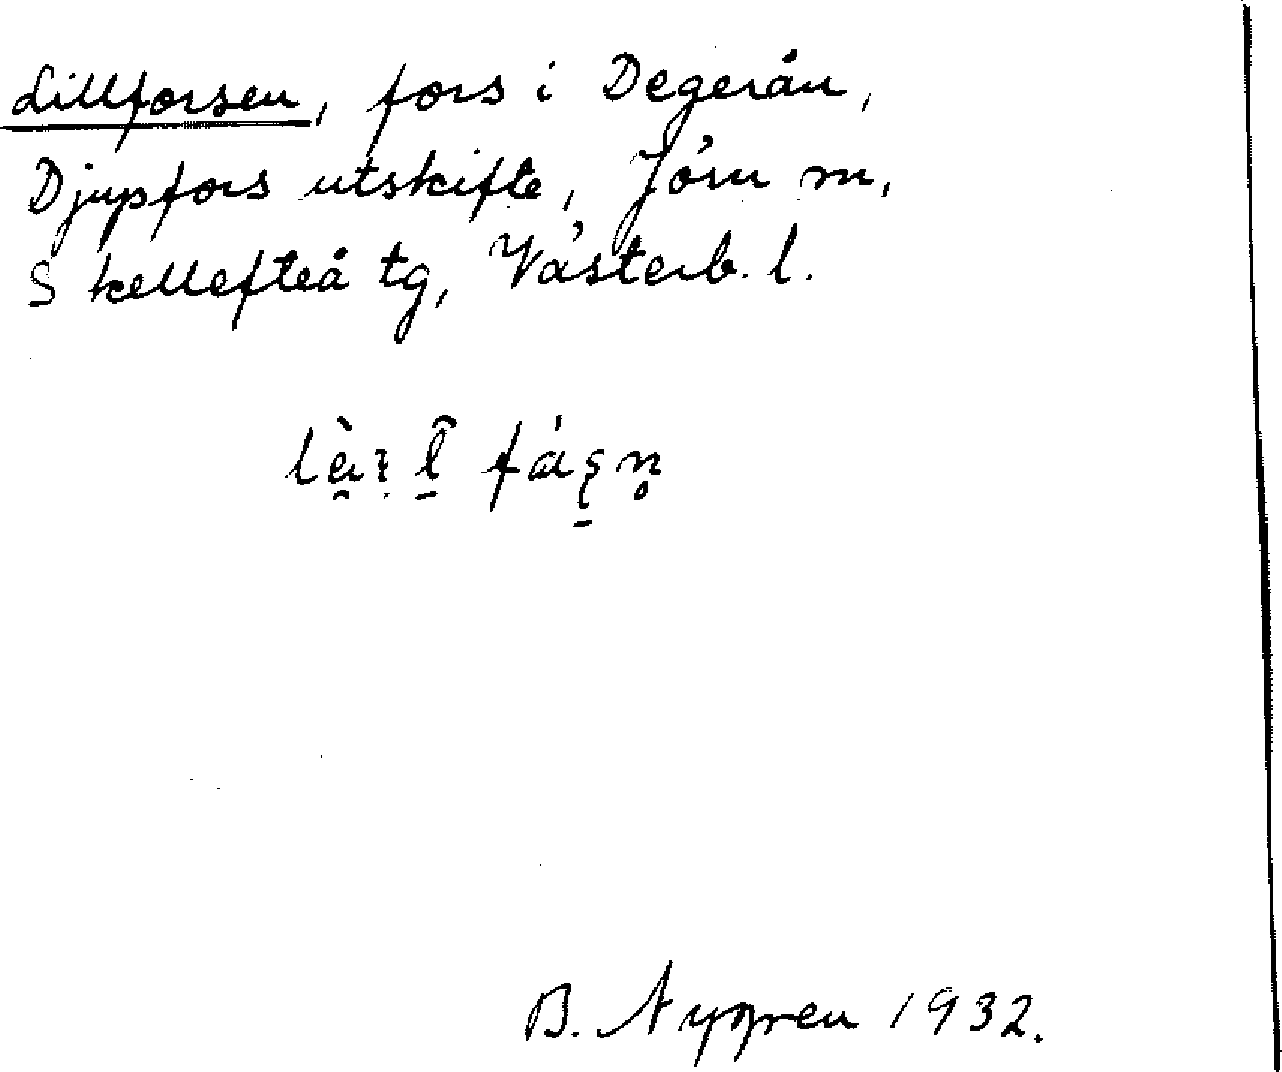 Lillforsen, fors i Degerån,
Djupfors utskifte, Jörn m,
Skellefteå tg, Västerb. l.
B. Nygren 1932.